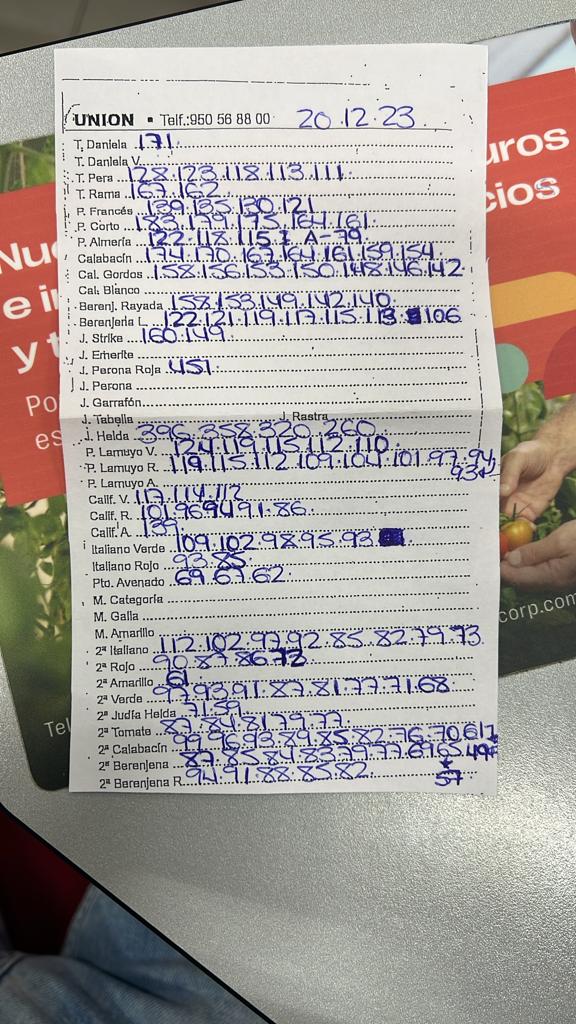 UNION • Telf.:950 56 88 00 20.12.23
T. Daniela 171
T. Daniela V.
T. Pera 128.123.118.113.111
T. Rama 167.162
P. Francés 139.135.130.121
P. Corto 183.179.175.164.161
P. Almería 122.118.115 I A-79
Calabacín 174.170.167.164.161.159.154
Cal. Gordos 158.156.153.150.148.146.142
Cal. Blanco
Berenj. Rayada 158.153.149.142.140
Berenjena L. 122.121.119.117.115.113 106
J. Strike 160.149
J. Emerite
J. Perona Roja 451
J. Perona
J. Garrafón
J. Tabella J. Rastra
J. Helda 396.358.320.260
P. Lamuyo V. 124.119.115.112.110
P. Lamuyo R. 119.115.112.109.104.101.97.94
93
P. Lamuyo A.
Calif. V. 117.114.112
Calif. R. 101.96.94.91.86
Calif. A. 139
Italiano Verde 109.102.98.95.93
Italiano Rojo 93.85
Pto. Avenado 69.67.62
M. Categoría
M. Galla
M. Amarillo
2ª Italiano 112.102.97.92.85.82.79.73
2ª Rojo 90.87.86.72
2ª Amarillo 61
2ª Verde 97.93.91.87.81.77.71.68
2ª Judía Helda 71.59
2ª Tomate 87.84.81.79.77
2ª Calabacín 99.96.93.89.85.82.76.70.61
2ª Berenjena 87.85.84.83.79.77.69.65.49
2ª Berenjena R. 94.91.88.85.82
57
Nue
e in
y t
Po
es
Tel
uros
cios
corp.com